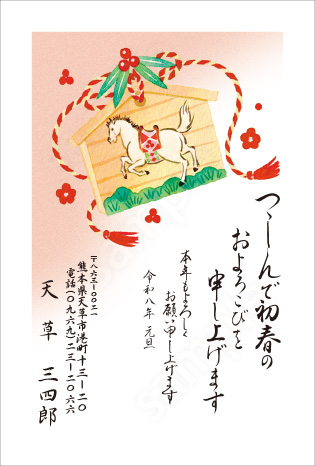 つゝしんで初春の
およろこびを
申し上げます
本年もよろしく
お願い申し上げます
令和八年 元旦
〒八六三-〇〇二一
熊本県天草市港町十三-二〇
電話(〇九六九)二三-二〇六六
天草 三四郎